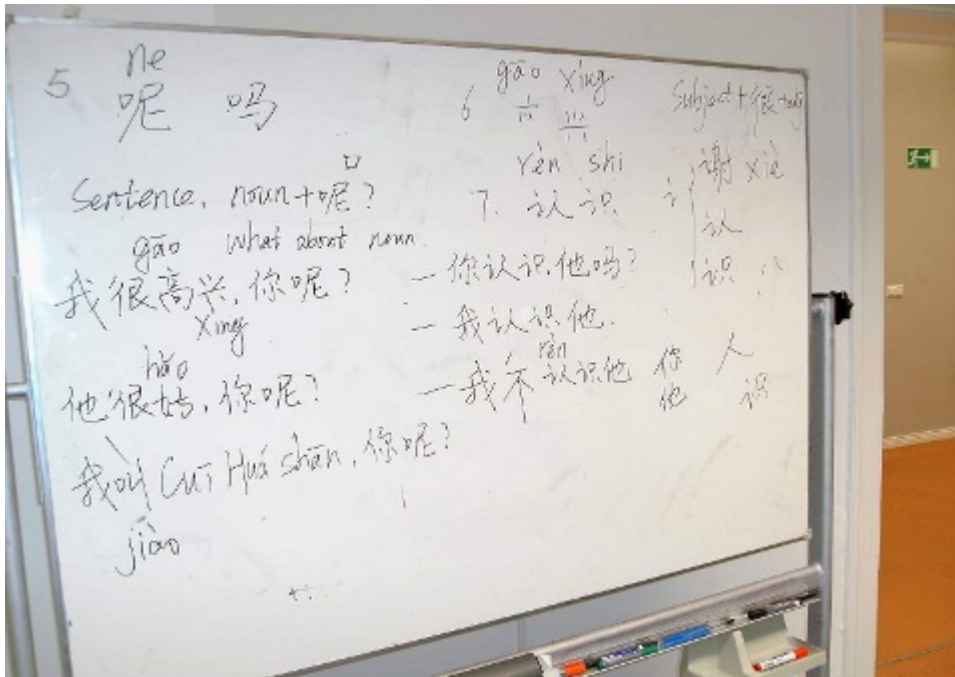 5 ne
呢 吗
Sentence, noun+呢?
gāo what about noun
我很高兴,你呢?
xìng
hǎo
他很好,你呢?
我叫 Cuī Huá shān,你呢?
jiào
6 gāo xìng
rèn shi
7. 认识
—你认识他吗?
—我认识他.
rèn
—我不认识他
Subject+很+adj
讠 谢 xiè
认
识
你 人
他 识